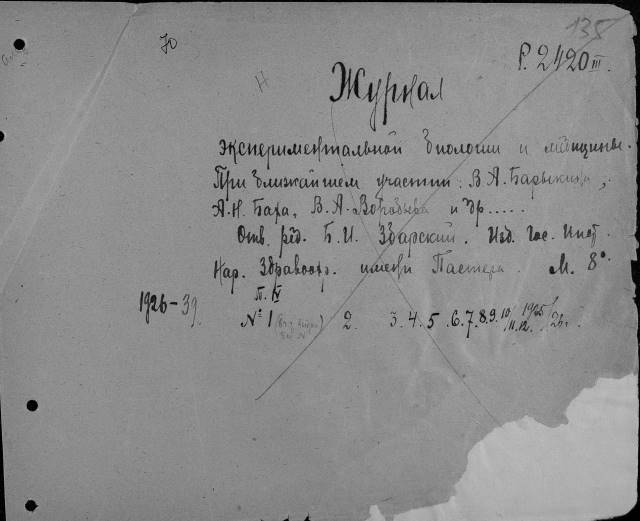 135
70
Р. 2420 III.
Н
Журнал
Экспериментальной биологии и медицины.
При ближайшем участии: В. А. Барыкина,
А. Н. Баха, В. А. Воробьева и др.....
Отв. ред. Б. И. Збарский. Изд. Гос. Инст.
Нар. Здравоохр. имени Пастера. М. 8°.
1926-39.
Т. IV
№ 1 2. 3. 4. 5. 6. 7. 8. 9. 10/11. 12. 1925/26 г.